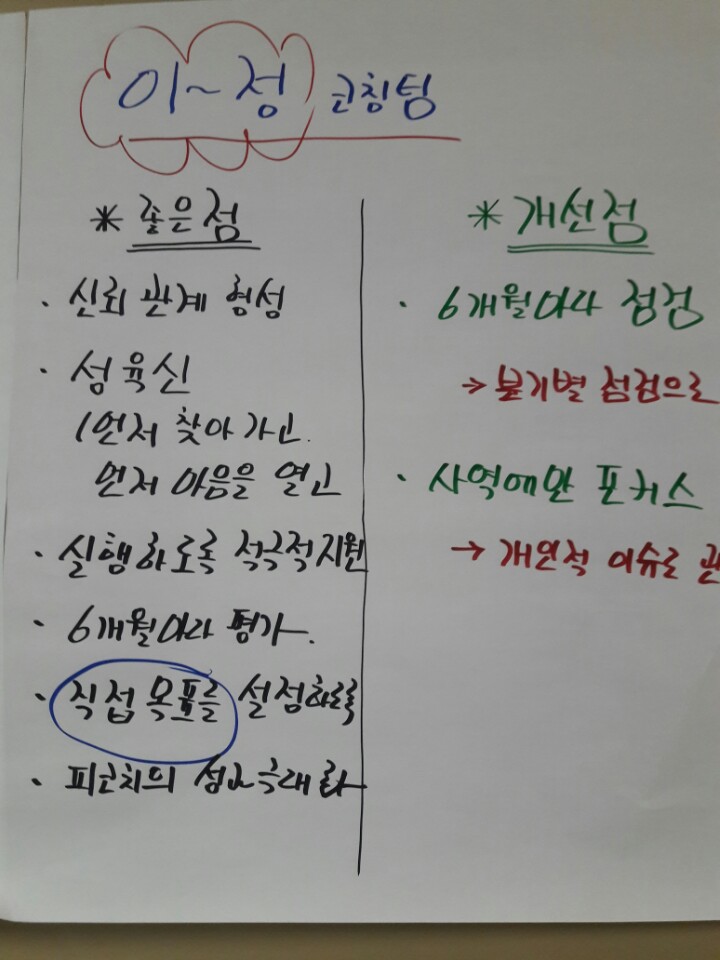 이~정 코칭팀
* 좋은점
· 신뢰 관계 형성
· 섬육신
(먼저 찾아가고.
먼저 마음을 열고
· 실행하도록 적극적지원
· 6개월마다 평가.
· 직접 목표를 설정하도록
· 피코치의 성과극대화
* 개선점
· 6개월마다 점검
→ 분기별 점검으로
· 사역에만 포커스
→ 개인적 이슈로 관